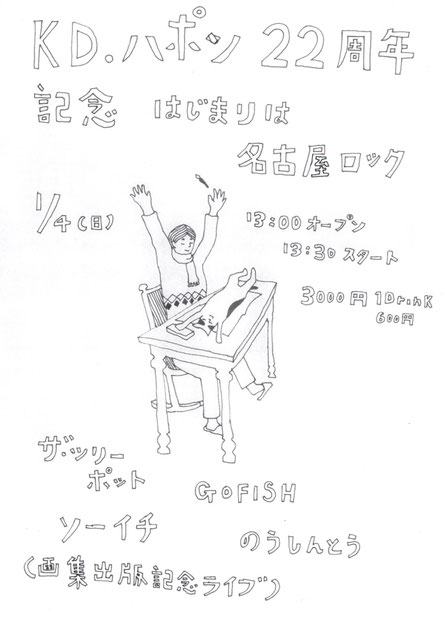 KD.ハポン 22周年
記念 はじまりは
名古屋ロック
1/4(日)
13:00 オープン
13:30 スタート
3000円 1DrinK
600円
ザ・ツリー
ポット
GOFISH
ソーイチ
のうしんとう
(画集出版記念ライブ)